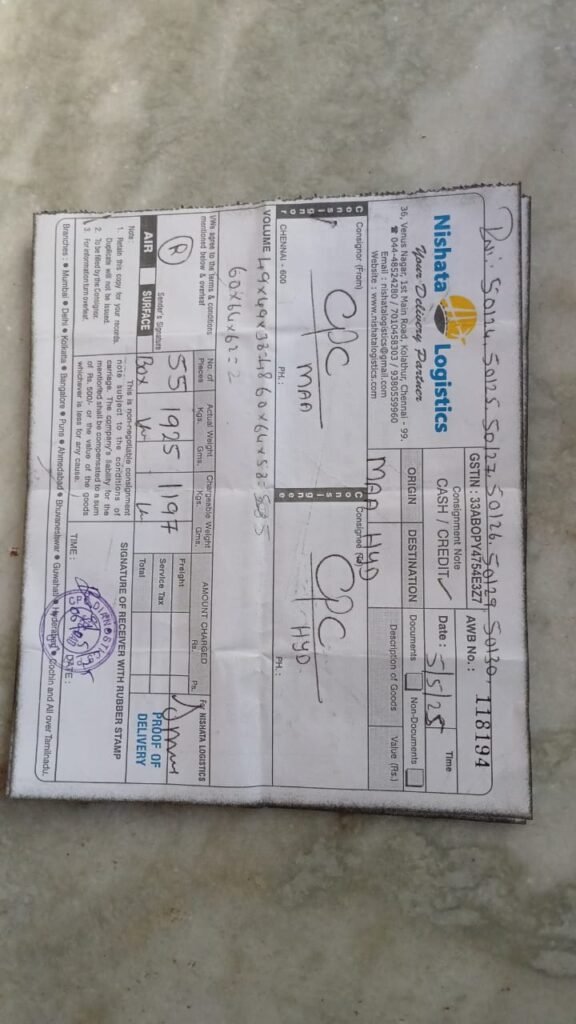 50124 50125 50127 50126, 50129 50130
Nishata Logistics
Your Delivery Partner
36, Venus Nagar, 1st Main Road, Kolathur, Chennai - 99.
☎ 044-48524280 / 7010458303 / 9380559960
Email : nishatalogistics@gmail.com
Website : www.nishatalogistics.com
GSTIN : 33ABOPY4754E3Z7
AWB No. : 118194
Consignment Note
CASH / CREDIT ✓
Date : 5/5/25
Time
ORIGIN
DESTINATION
Documents
Non-Documents
MAA HYD
Description of Goods
Value (Rs.)
Consignor
Consignor (From)
CPC
MAA
CHENNAI - 600
PH. :
Consignee
CPC
HYD
PH. :
VOLUME
60x64x63=2
I/We agree to the Terms & conditions
mentioned below & overleaf
Sender's Signature
No. of Pieces
Actual Weight
Kgs. Gms.
Chargeable Weight
Kgs. Gms.
AMOUNT CHARGED
Rs. Ps.
For NISHATA LOGISTICS
AIR
SURFACE
55 1925 1197
Box
Freight
Service Tax
Total
PROOF OF DELIVERY
Note :
1. Retain this copy for your records.
Duplicate will not be issued.
2. To be filled by the Consignor.
3. For information turn overleaf.
This is non-negotiable consignment
note subject to the conditions of
carriage. The company's liability for the
mentioned shall be compensated to a sum
of Rs. 500/- or the value of the goods
whichever is less for any cause.
SIGNATURE OF RECEIVER WITH RUBBER STAMP
TIME :
DATE :
Branches : ● Mumbai ● Delhi ● Kolkatta ● Bangalore ● Puns ● Ahmedabad ● Bhuvaneshwar ● Guwahati ● Hyderabad ● Cochin and All over Tamilnadu.